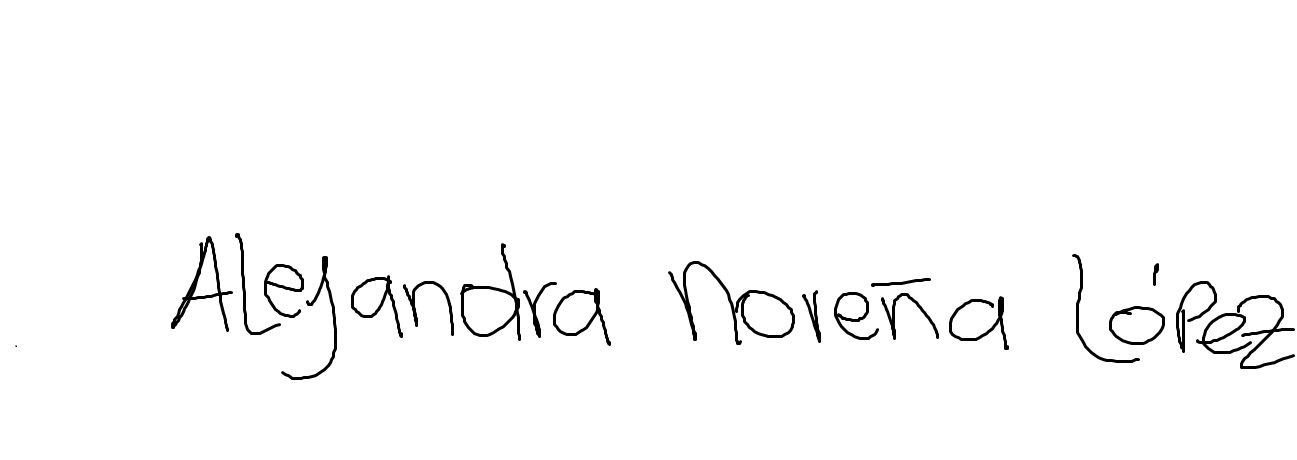 Alejandra Noreña López